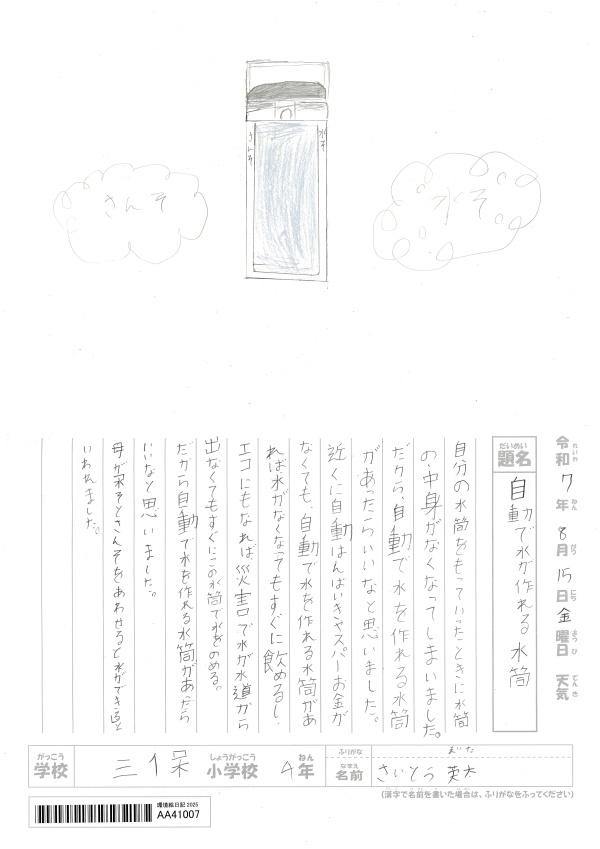 さんそ
さんそ
水そ
水そ
令和7年8月15日金曜日 天気
れいわ ねん がつ にち ようび てんき
だいめい
題名 自動で水が作れる水筒
自分の水筒をもっていったときに水筒
の中身がなくなってしまいました。
だから、自動で水を作れる水筒
があったらいいなと思いました。
近くに自動はんばいきやスパーお金が
なくても、自動で水を作れる水筒があ
れば水がなくなってもすぐに飲めるし、
エコにもなれば災害で水が水道から
出なくてもすぐにこの水筒で水をのめる。
だから自動で水を作れる水筒があったら
いいなと思いました。
母が水そとさんそをあわせると水ができると
いわれました。
がっこう しょうがっこう ねん
学校 三保 小学校 4年
ふりがな えいた
なまえ
名前 さいとう 英太
(漢字で名前を書いた場合は、ふりがなをふってください)
環境絵日記 2025
AA41007